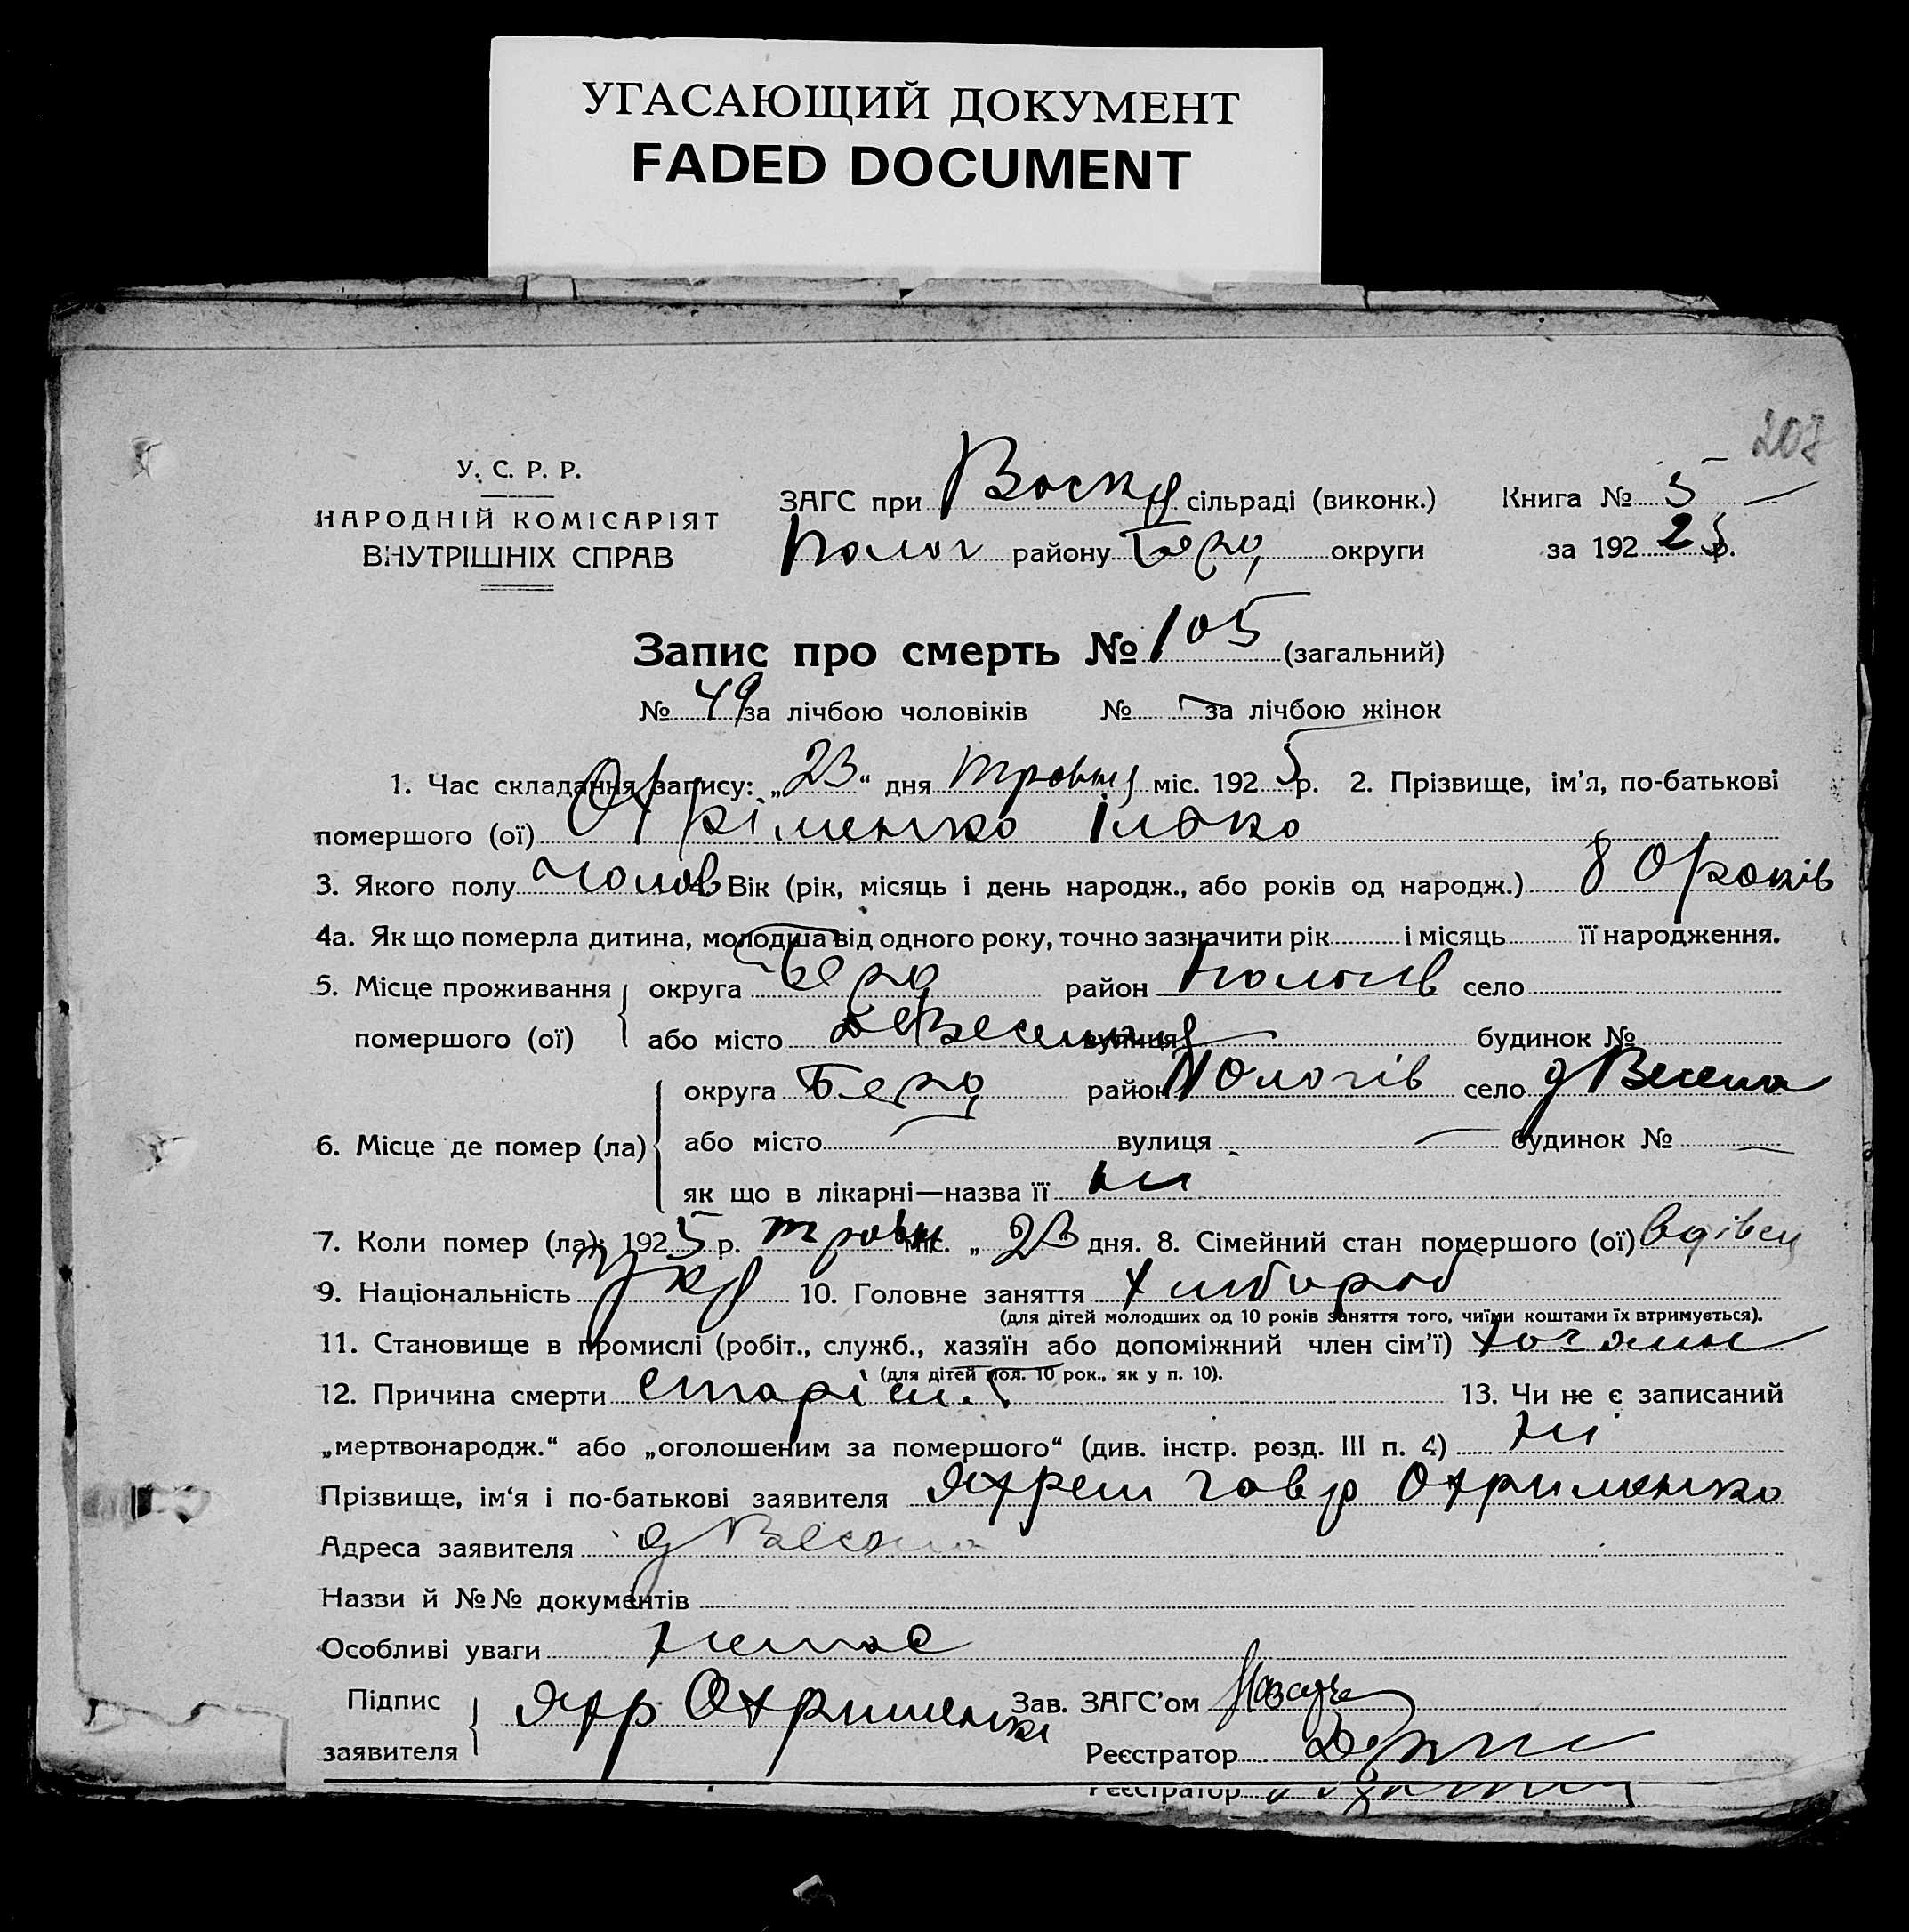 УГАСАЮЩИЙ ДОКУМЕНТ
FADED DOCUMENT
207
У. С. Р. Р.
НАРОДНІЙ КОМІСАРІЯТ
ВНУТРІШНІХ СПРАВ
ЗАГС при Воскр сільраді (виконк.) Книга № 5
Полог району Берд округи за 192 25 р.
Запис про смерть № 105 (загальний)
№ 49 за лічбою чоловіків № за лічбою жінок
1. Час складання запису: „23“ дня травня міс. 1925 р. 2. Прізвище, ім’я, по-батькові
помершого (ої) Охріменко Ілько
3. Якого полу чолов Вік (рік, місяць і день народж., або років од народж.) 80 років
4а. Як що померла дитина, молодша від одного року, точно зазначити рік і місяць її народження.
5. Місце проживання помершого (ої) округа Берд район Пологів село
або місто вулиця будинок №
6. Місце де помер (ла) округа Берд район Пологів село д Весела
або місто — вулиця — будинок № —
як що в лікарні—назва її ні
7. Коли помер (ла): 1925 р. травн міс. „23 дня. 8. Сімейний стан помершого (ої) вдівец
9. Національність укр 10. Головне заняття хлібороб
(для дітей молодших од 10 років заняття того, чиїми коштами їх втримується).
11. Становище в промислі (робіт., служб., хазяїн або допоміжний член сім’ї)
(для дітей мол. 10 рок., як у п. 10).
12. Причина смерти старіст. 13. Чи не є записаний
„мертвонародж.“ або „оголошеним за помершого“ (див. інстр. розд. III п. 4) ні
Прізвище, ім‘я і по-батькові заявителя Гавр Охрименко
Адреса заявителя д Весела
Назви й №№ документів
Особливі уваги немає
Підпис заявителя Охрименко Зав. ЗАГС’ом
Реєстратор
Реєстратор